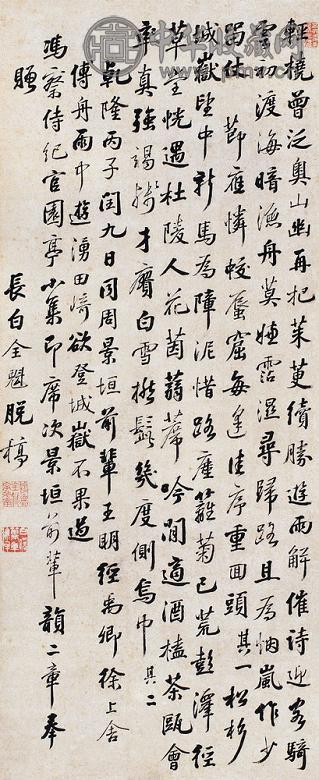 中华收藏网
輕橈曾泛奧山幽再把茱萸續勝遊雨解催詩迎客騎
雲初渡海暗漁舟莫嫌霑濕尋歸路且為烟嵐作少
留仗節應憐蛟蜃窟每逢佳序重回頭其一松杉
城嶽望中新馬為障泥惜路塵籬菊已荒彭澤徑
草堂恍遇杜陵人花茵蒻蓆吟閒適酒榼茶甌會
率真強竭才賡白雪撚鬚幾度側烏巾其二
乾隆丙子閏九日同周景垣前輩王明經禹卿徐上舍
傳舟雨中遊湧田崎欲登城嶽不果過
馮察侍紀官園亭小集即席次景垣前輩韻二章奉
贈
長白全魁脫槁